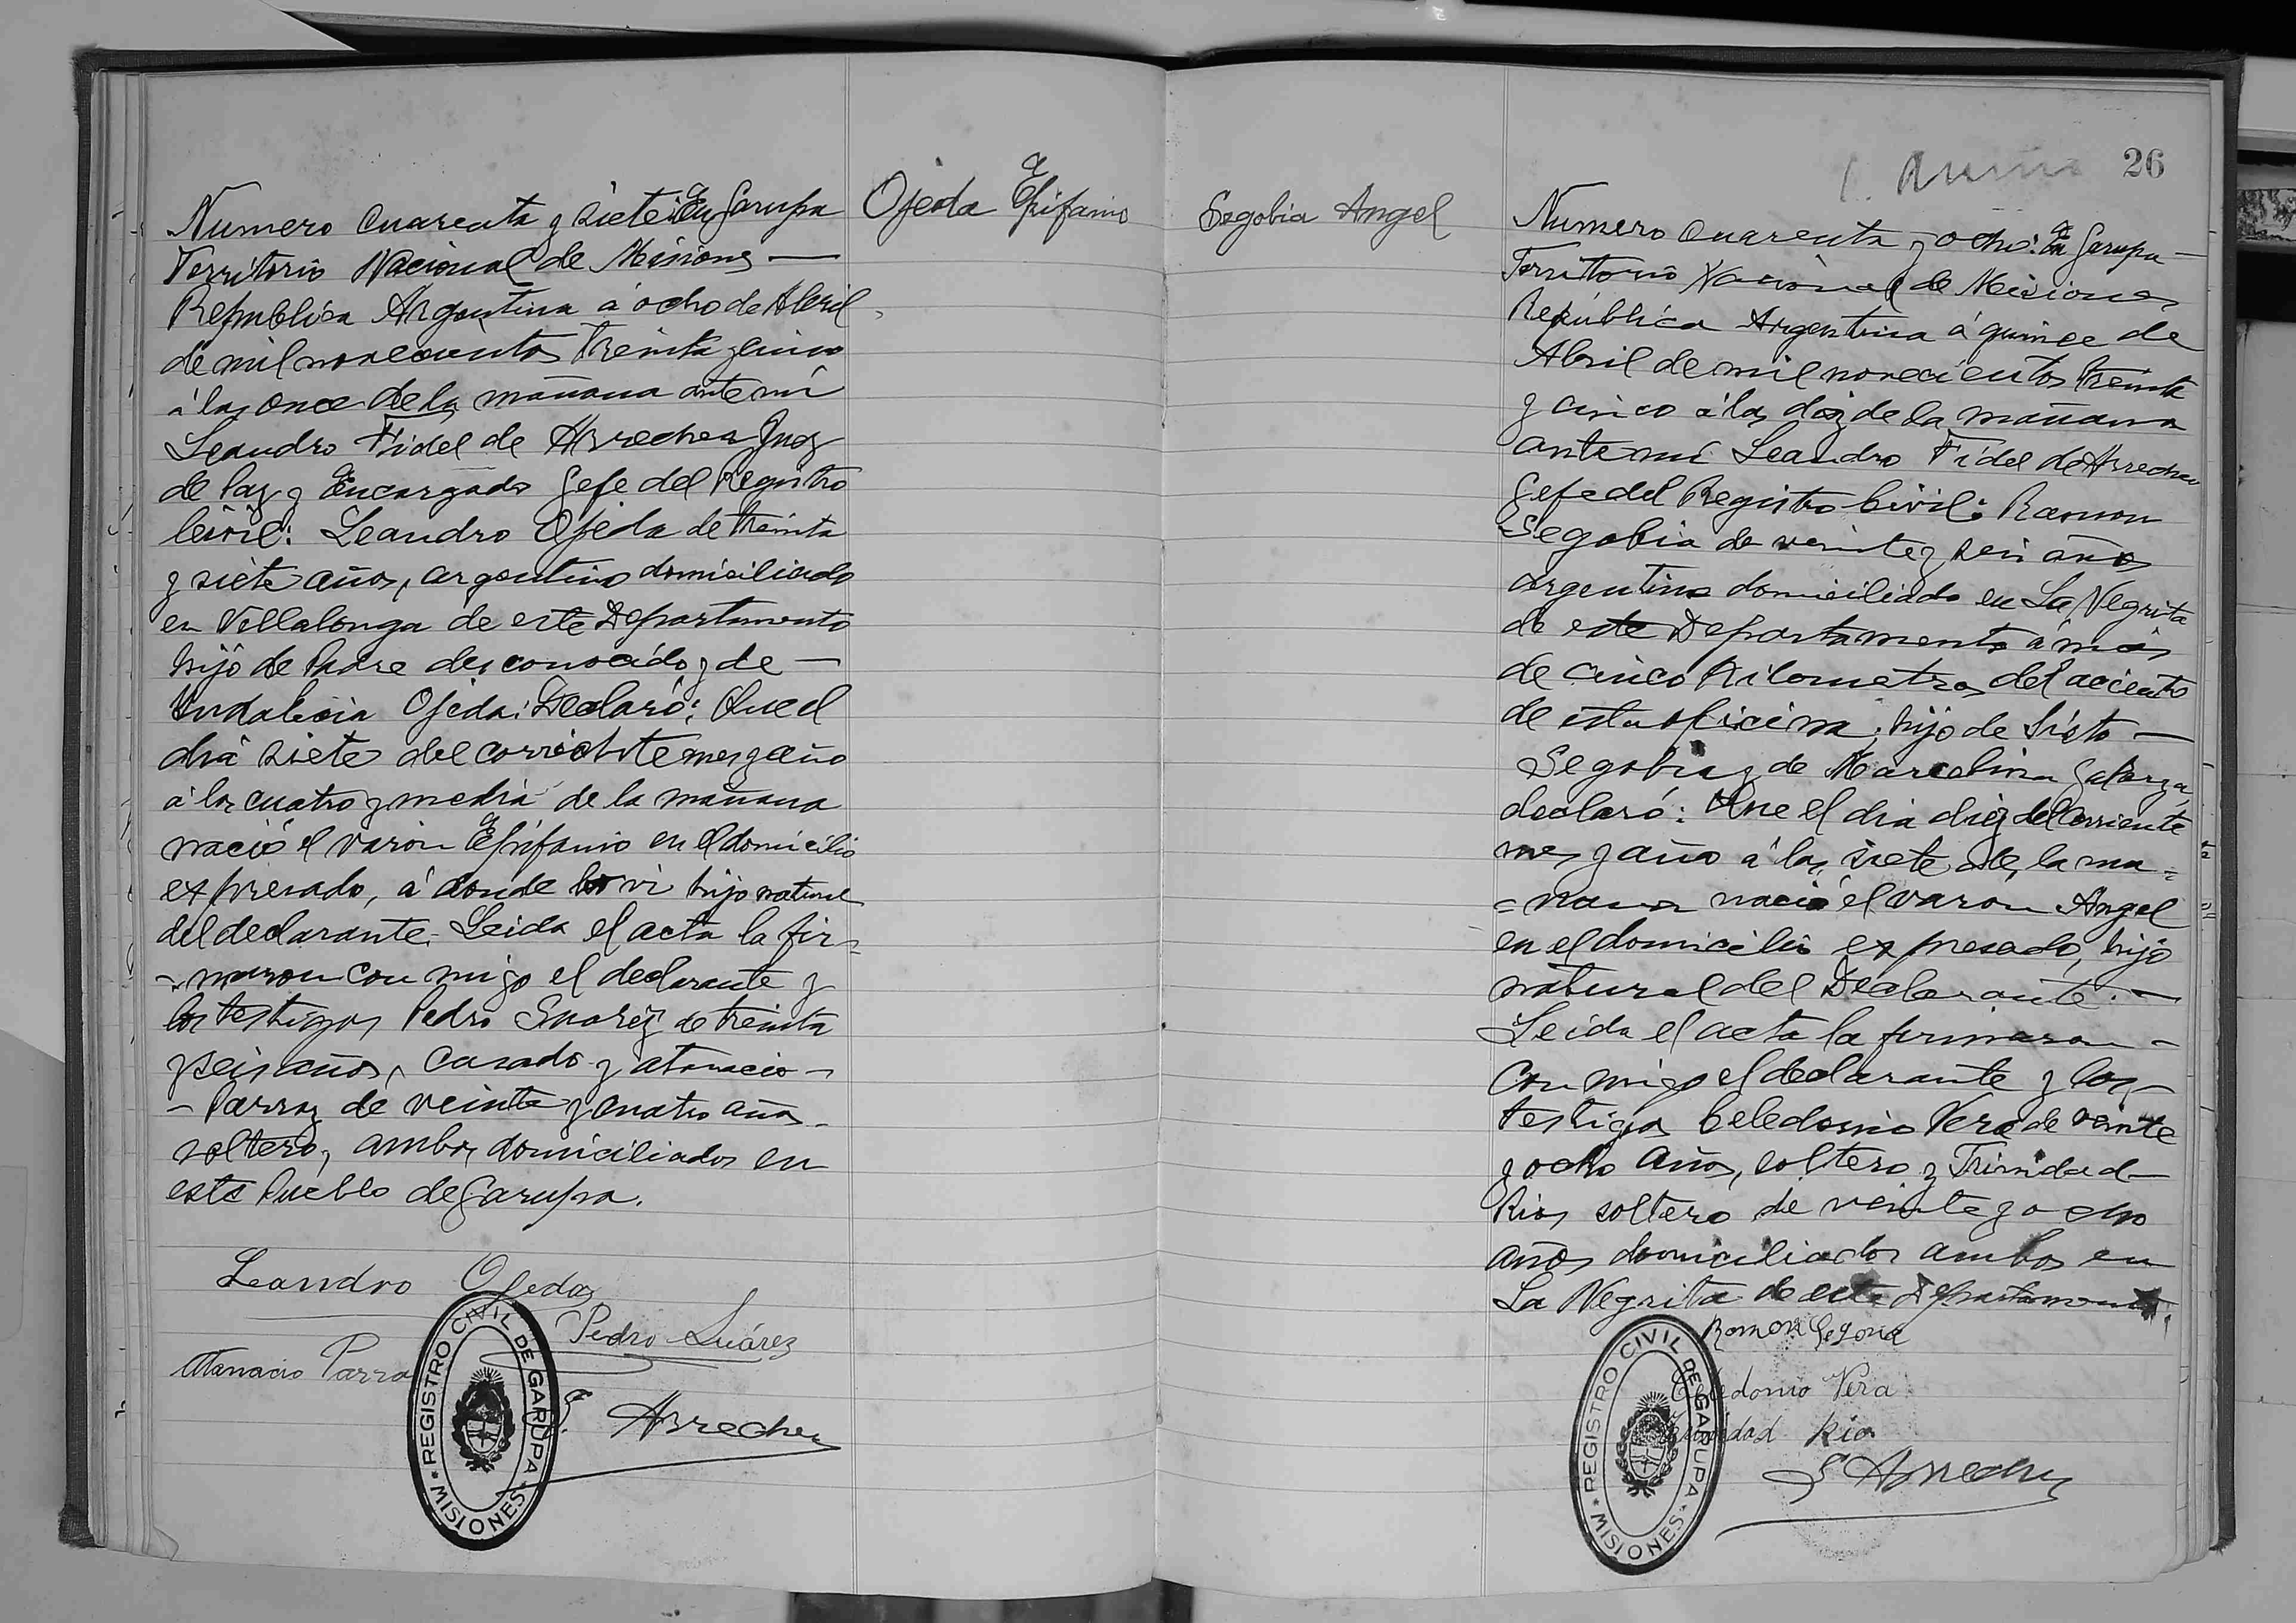 Numero cuarenta y siete: En Garupa
Territorio Nacional de Misiones —
Republica Argentina á ocho de Abril
de mil novecientos treinta y cinco
á las once de la mañana ante mí
Leandro Fidel de Arrechea Juez
de Paz y Encargado Gefe del Registro
Civil: Leandro Ojeda de treinta
y siete años, argentino domiciliado
en Villalonga de este Departamento
hijo de Padre desconocido y de —
Indalicia Ojeda: Declaró: Que el
dia siete del corriente mes y año
á las cuatro y media de la mañana
nació el varon Epifanio en el domicilio
expresado, á donde lo vi hijo natural
del declarante. Leida el acta la fir=
-maron con migo el declarante y
los testigos Pedro Suarez de treinta
y seis años, casado y atanacio -
- Parra de veinte y cuatro años -
soltero, ambos domiciliados en
este Pueblo de Garupa.
Leandro Ojeda
Pedro Suárez
Atanacio Parra
Arrechea
REGISTRO CIVIL DE GARUPA
* MISIONES *
Ojeda Epifanio
Segobia Angel
26
Numero cuarenta y ocho: En Garupa —
Territorio Nacional de Misiones
República Argentina á quince de
Abril de mil novecientos treinta
y cinco á las diez de la mañana
ante mí Leandro Fidel de Arrechea
Gefe del Registro Civil: Ramon
Segobia de veinte y seis años
argentino domiciliado en La Negrita
de este Departamento á más
de cinco kilometros del aciento
de esta oficina, hijo de Sisto —
Segobia y de Marcelina
declaró: Que el dia diez del corriente
mes y año á las siete de la ma=
=nana nació el varon Angel
en el domicilio expresado, hijo
natural del Declarante. —
Leida el acta la firmaron -
con migo el declarante y los -
testigos Celedonio Vera de veinte
y ocho años, soltero y Trinidad
Rios soltero de veinte y ocho
años domiciliados ambos en
La Negrita de este Departamento.
Ramon
Celedonio Vera
Trinidad Rios
Arrechea
REGISTRO CIVIL DE GARUPA
* MISIONES *